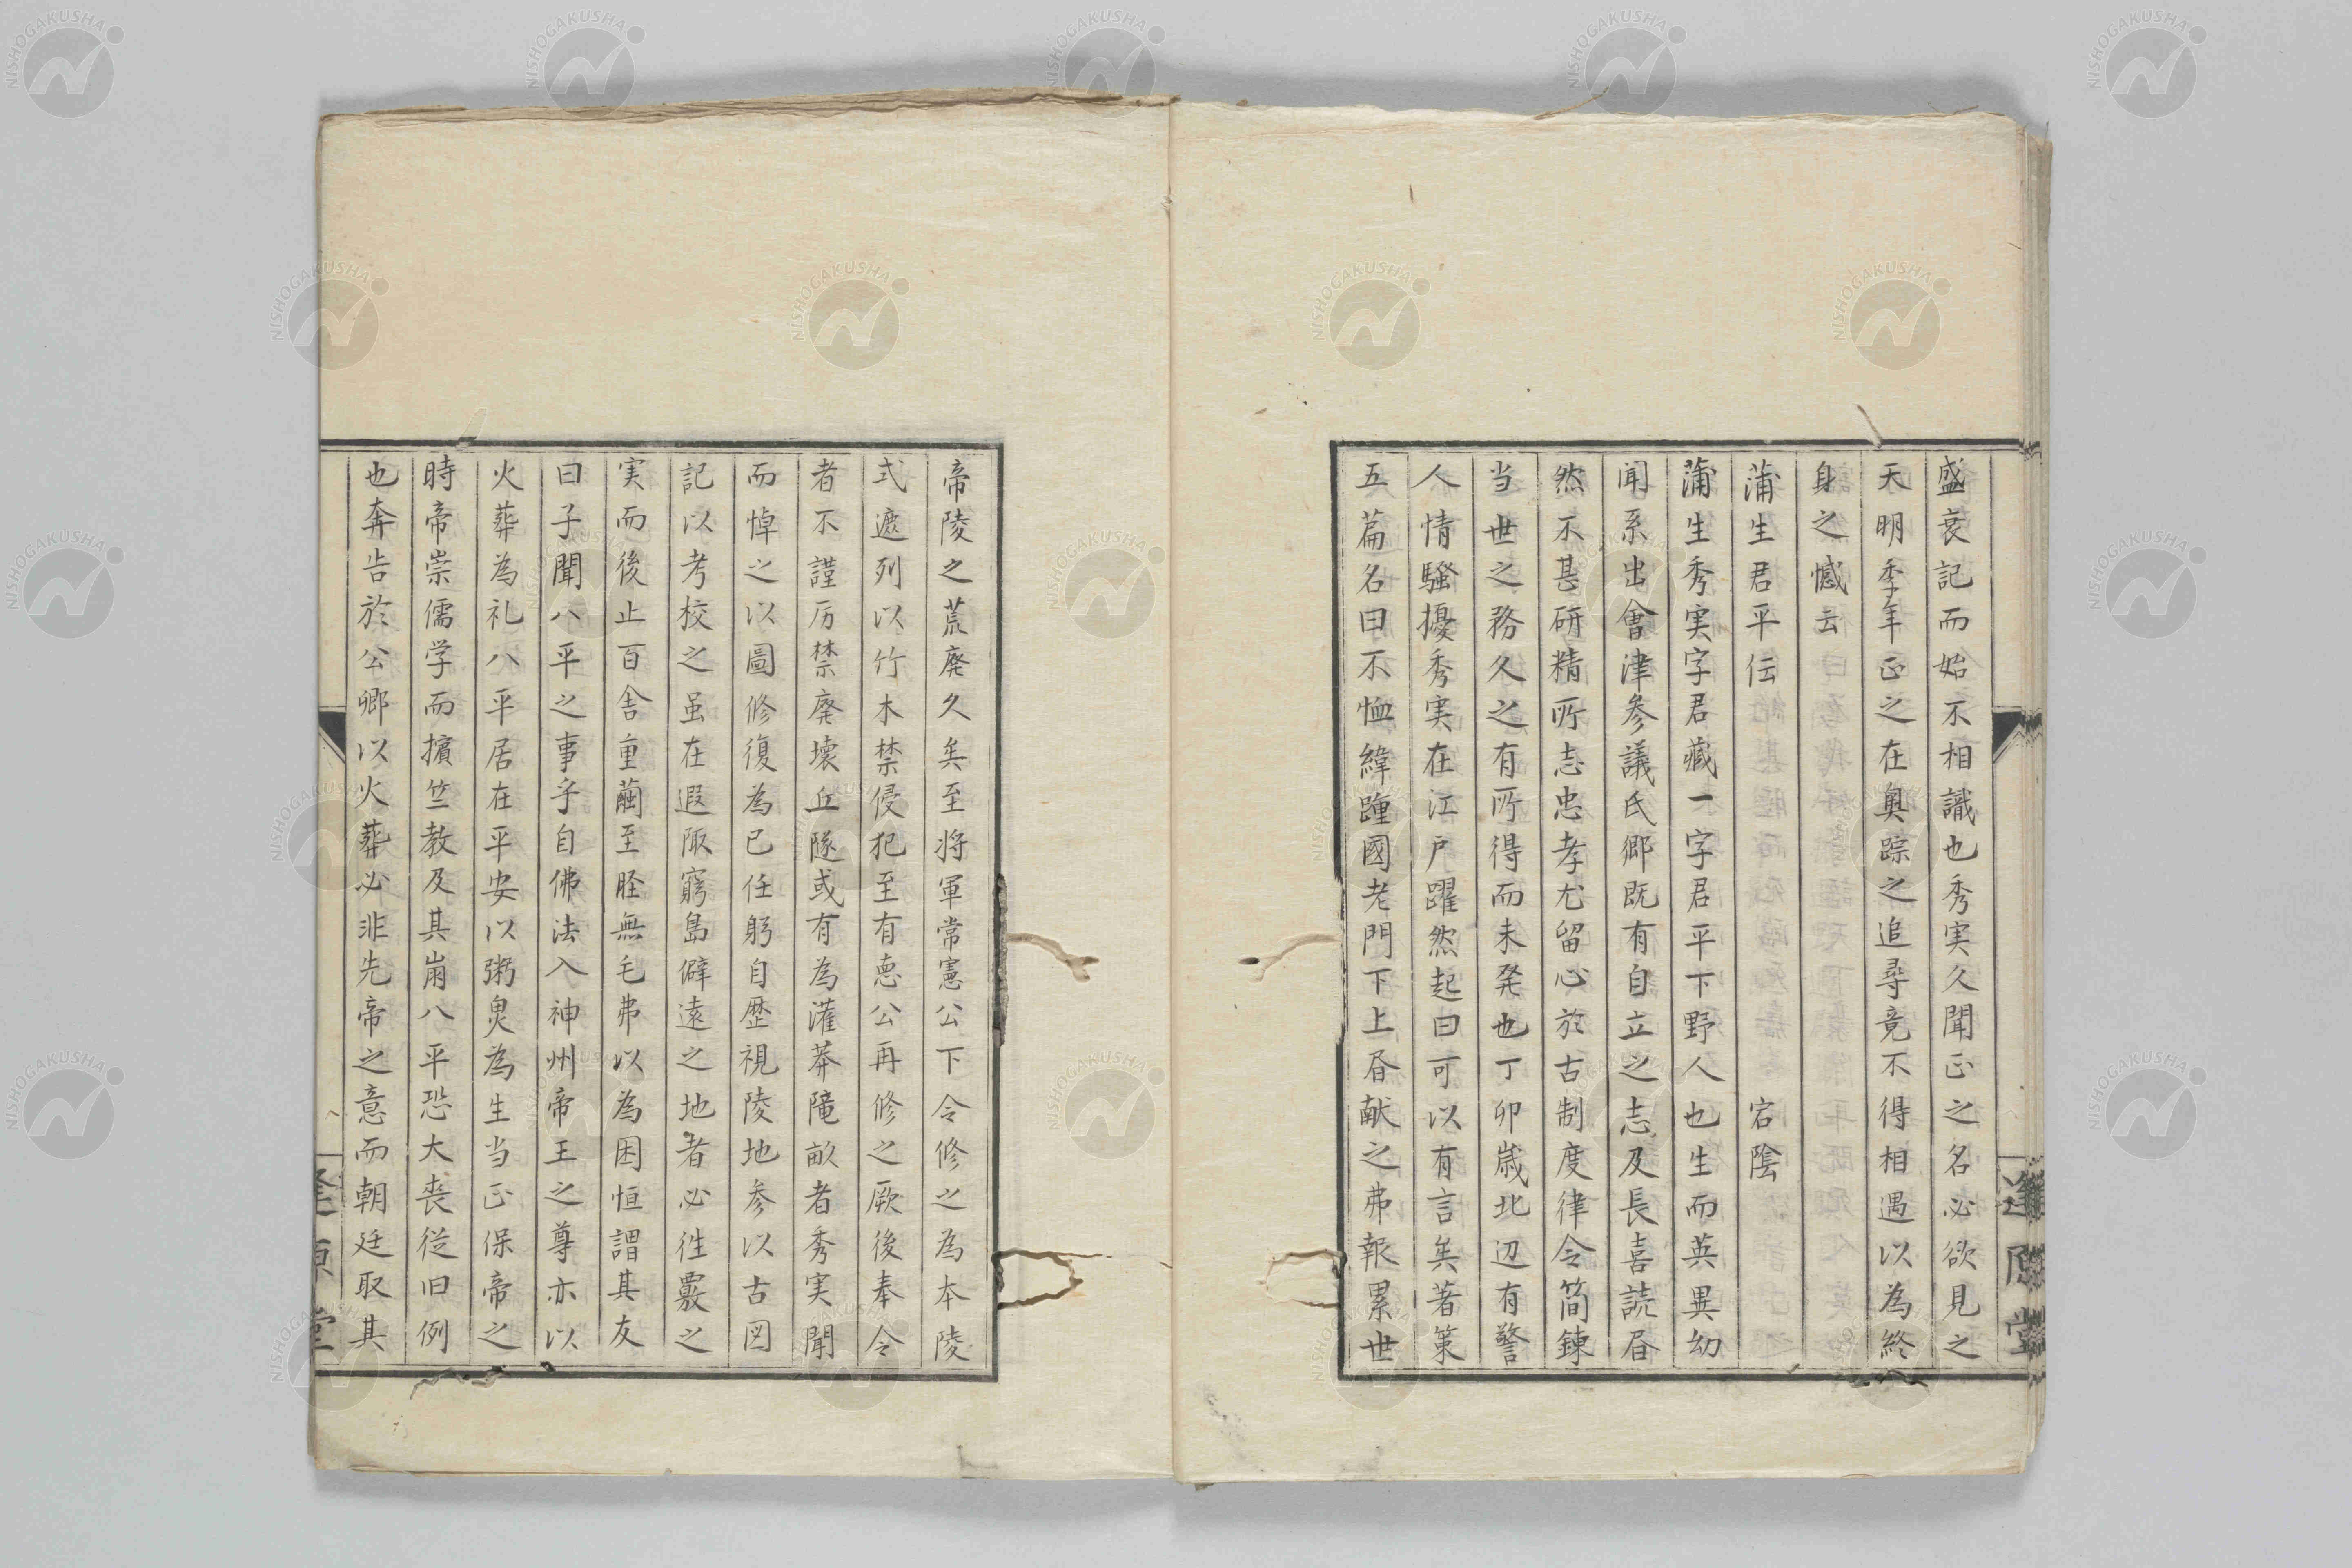 盛衰記而始不相識也秀実久聞正之名必欲見之
天明季年正之在奥踪之追尋竟不得相遇以為終
身之憾云
蒲生君平伝 宕陰
蒲生秀実字君臧一字君平下野人也生而英異幼
聞系出會津参議氏郷既有自立之志及長喜読昏
然不甚研精所志忠孝尤留心於古制度律令簡錬
当世之務久之有所得而未発也丁卯歳北辺有警
人情騒擾秀実在江戸躍然起曰可以有言矣著策
五篇名曰不恤緯踵國老門下上昏献之弗報累世
帝陵之荒廃久矣至将軍常憲公下令修之為本陵
式遮列以竹木禁侵犯至有悳公再修之厥後奉令
者不謹厉禁廃壊丘隧或有為灌莽隴畝者秀実聞
而悼之以圖修復為已任躬自歴視陵地参以古図
記以考校之虽在遐陬窮島僻遠之地者必徃覈之
実而後止百舎重繭至胫無毛弗以為困恒謂其友
曰子聞八平之事乎自佛法入神州帝王之尊亦以
火葬為礼八平居在平安以粥魚為生当正保帝之
時帝崇儒学而擯竺教及其崩八平恐大丧従旧例
也奔告於公卿以火葬必非先帝之意而朝廷取其
逢原堂
NISHOGAKUSHA